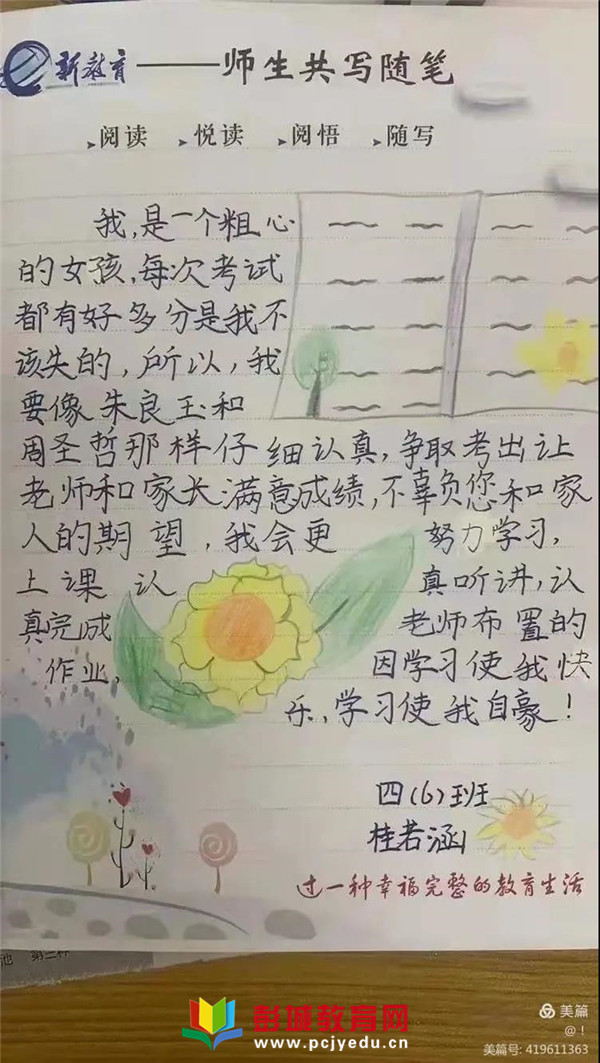 新教育——师生共写随笔
阅读 悦读 阅悟 随写
我,是一个粗心
的女孩,每次考试
都有好多分是我不
该失的,所以,我
要像朱良玉和
周圣哲那样仔细认真,争取考出让
老师和家长满意成绩,不辜负您和家
人的期望,我会更 努力学习,
上课认 真听讲,认
真完成 老师布置的
作业, 因学习使我快
乐,学习使我自豪!
四(6)班
桂若涵
过一种幸福完整的教育生活
彭城教育网
www.pcjyedu.cn
美篇
@!
美篇号: 419611363